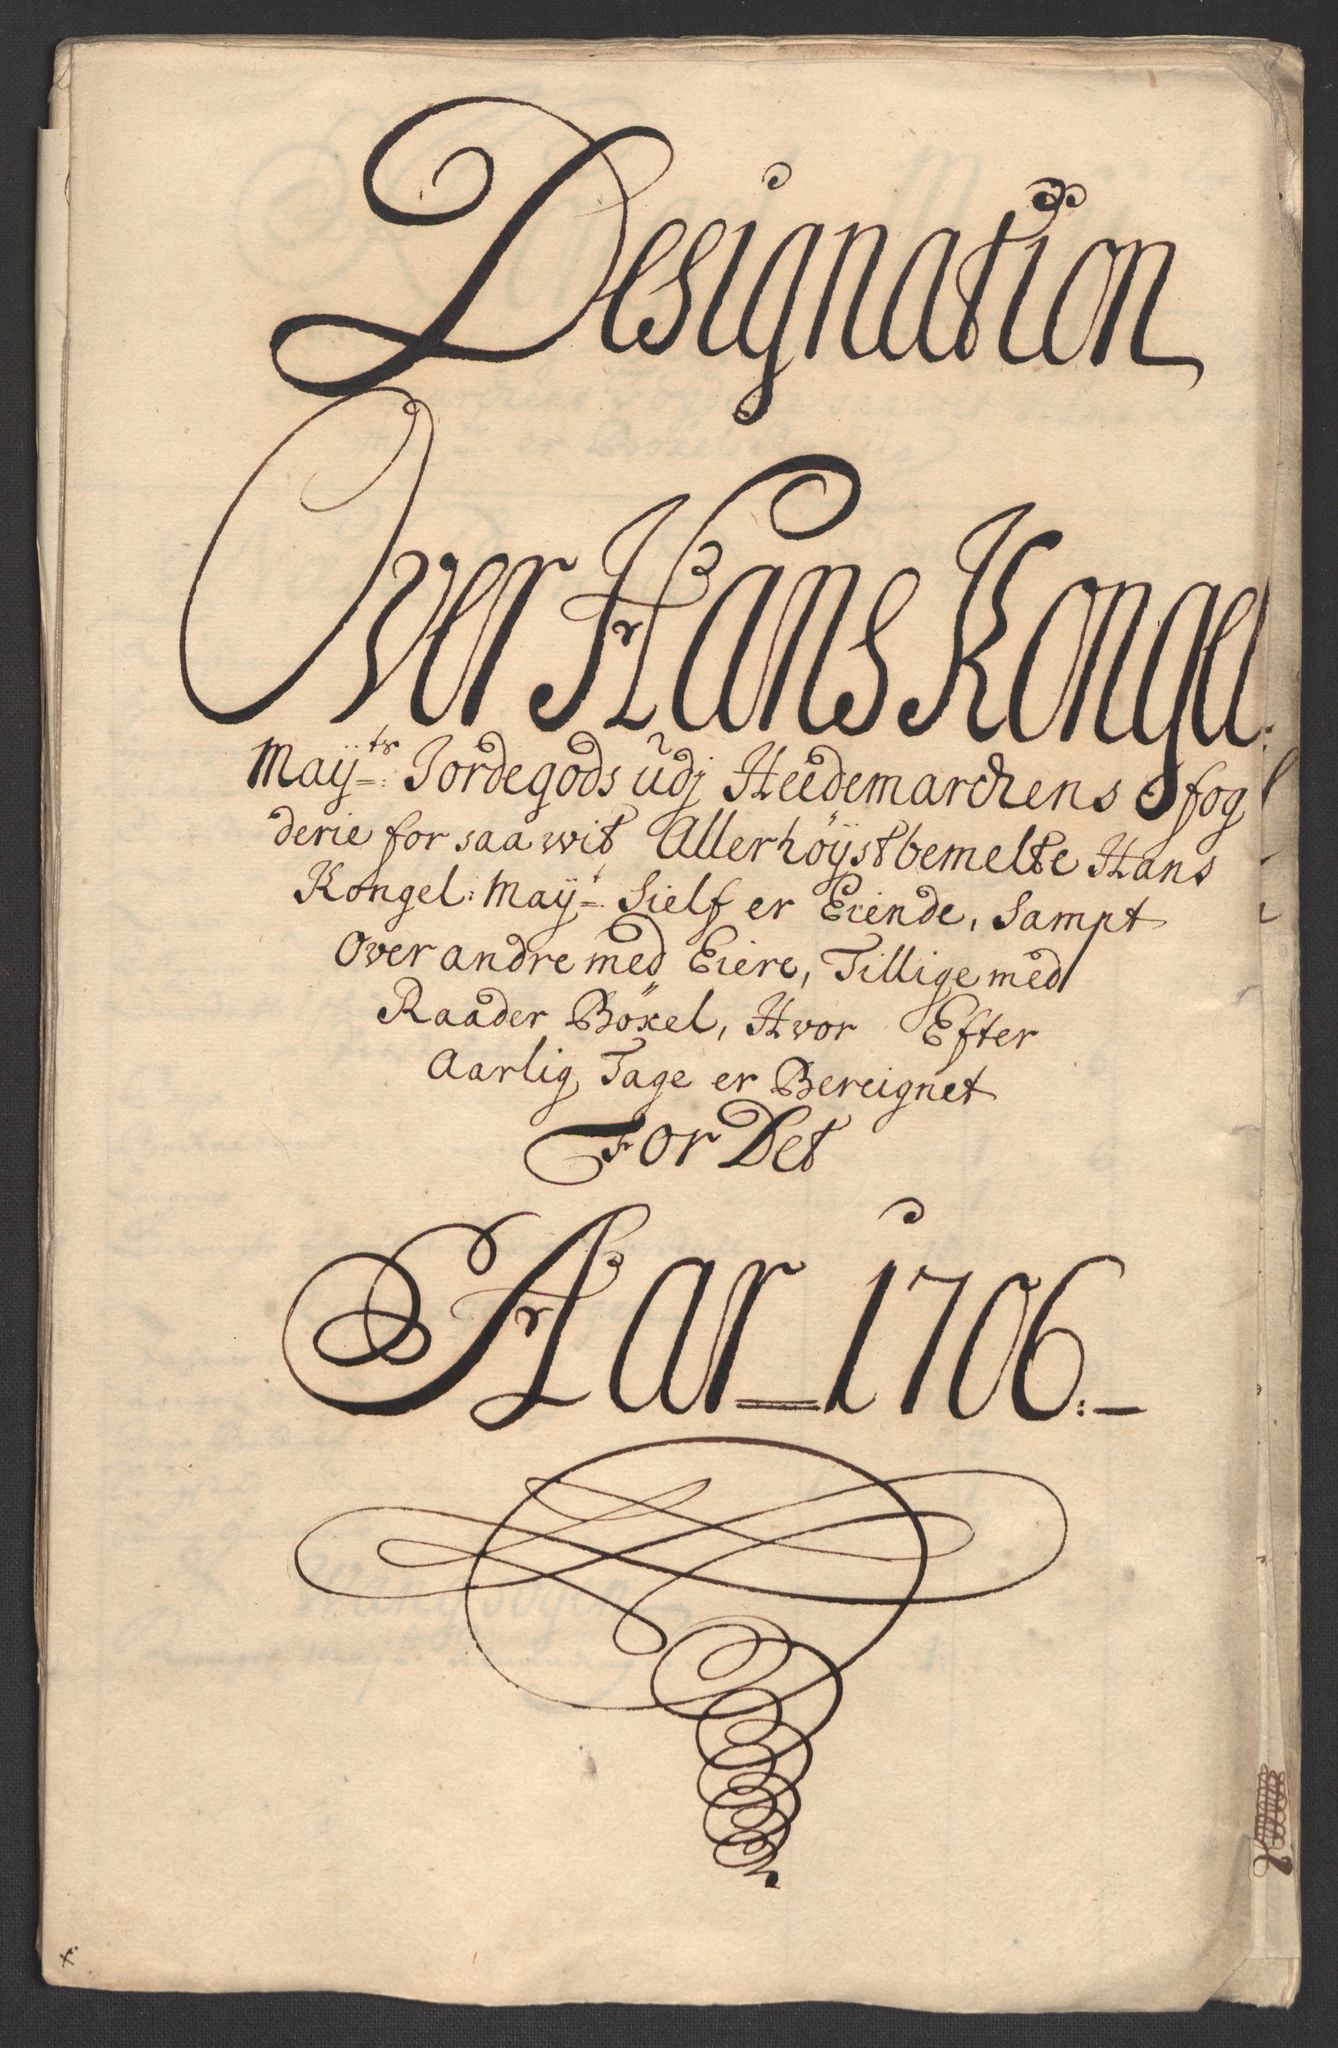 Designation
Over Hans Kongel:
Maÿ:ts Jordegods udj Heedemarckens fog
derie for saa wit Allerhöÿstbemelte Hans
Kongel: Maÿ:t Sielf er Eiende, Sampt
Over andre med Eiere, Tillige med
Raader Böxel, Hvor Efter
Aarlig Tage er Bereignet
For Det
Aar 1706